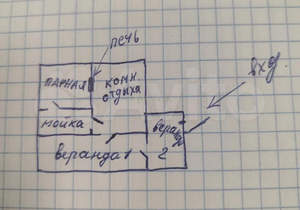 печь
вход
парная
комн.
отдыха
мойка
веранда
2
веранда 1